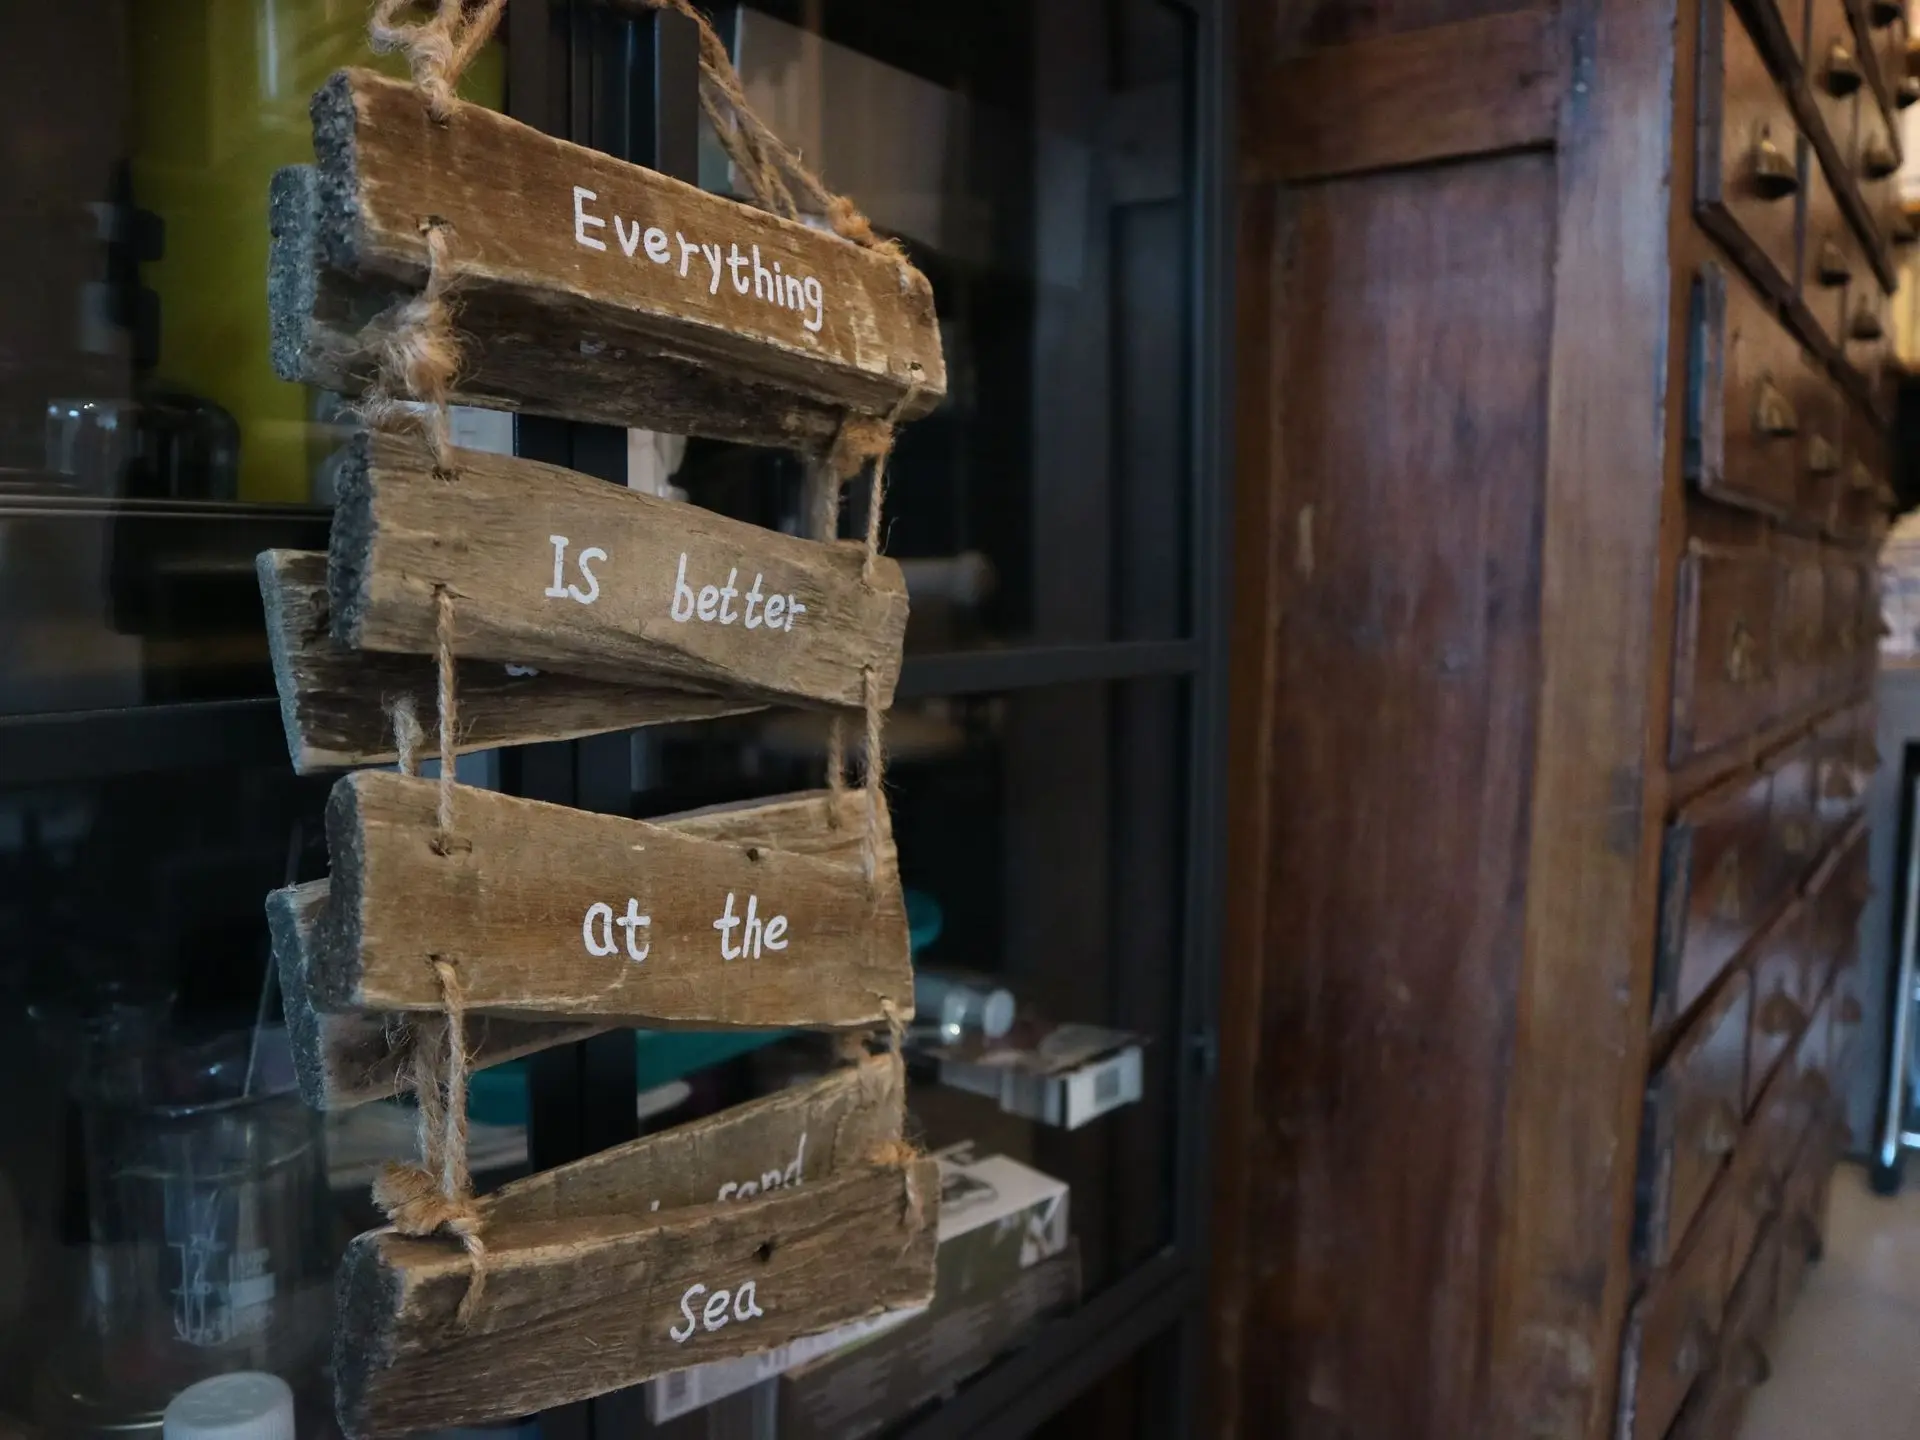 Everything
IS better
at the
sea
sand